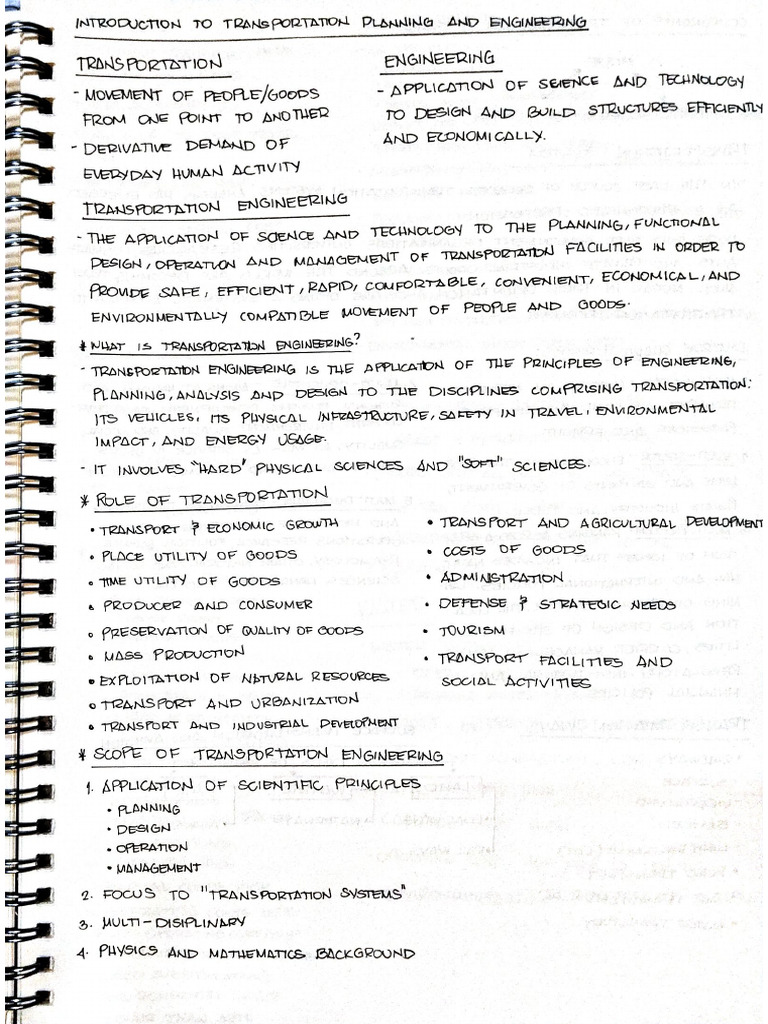 INTRODUCTION TO TRANSPORTATION PLANNING AND ENGINEERING
TRANSPORTATION
- MOVEMENT OF PEOPLE/GOODS
FROM ONE POINT TO ANOTHER
- DERIVATIVE DEMAND OF
EVERYDAY HUMAN ACTIVITY
ENGINEERING
- APPLICATION OF SCIENCE AND TECHNOLOGY
TO DESIGN AND BUILD STRUCTURES EFFICIENTLY
AND ECONOMICALLY.
TRANSPORTATION ENGINEERING
- THE APPLICATION OF SCIENCE AND TECHNOLOGY TO THE PLANNING, FUNCTIONAL
DESIGN, OPERATION AND MANAGEMENT OF TRANSPORTATION FACILITIES IN ORDER TO
PROVIDE SAFE, EFFICIENT, RAPID, COMFORTABLE, CONVENIENT, ECONOMICAL, AND
ENVIRONMENTALLY COMPATIBLE MOVEMENT OF PEOPLE AND GOODS.
* WHAT IS TRANSPORTATION ENGINEERING?
- TRANSPORTATION ENGINEERING IS THE APPLICATION OF THE PRINCIPLES OF ENGINEERING,
PLANNING, ANALYSIS AND DESIGN TO THE DISCIPLINES COMPRISING TRANSPORTATION:
ITS VEHICLES, ITS PHYSICAL INFRASTRUTURE, SAFETY IN TRAVEL, ENVIRONMENTAL
IMPACT, AND ENERGY USAGE.
- IT INVOLVES "HARD" PHYSICAL SCIENCES AND "SOFT" SCIENCES.
* ROLE OF TRANSPORTATION
• TRANSPORT & ECONOMIC GROWTH
• PLACE UTILITY OF GOODS
• TIME UTILITY OF GOODS
• PRODUCER AND CONSUMER
• PRESERVATION OF QUALITY OF GOODS
• MASS PRODUCTION
• EXPLOITATION OF NATURAL RESOURCES
• TRANSPORT AND URBANIZATION
• TRANSPORT AND INDUSTRIAL DEVELOPMENT
• TRANSPORT AND AGRICULTURAL DEVELOPMENT
• COSTS OF GOODS
• ADMINISTRATION
• DEFENSE & STRATEGIC NEEDS
• TOURISM
• TRANSPORT FACILITIES AND
SOCIAL ACTIVITIES
* SCOPE OF TRANSPORTATION ENGINEERING
1. APPLICATION OF SCIENTIFIC PRINCIPLES
• PLANNING
• DESIGN
• OPERATION
• MANAGEMENT
2. FOCUS TO "TRANSPORTATION SYSTEMS"
3. MULTI-DISIPLINARY
4. PHYSICS AND MATHEMATICS BACKGROUND